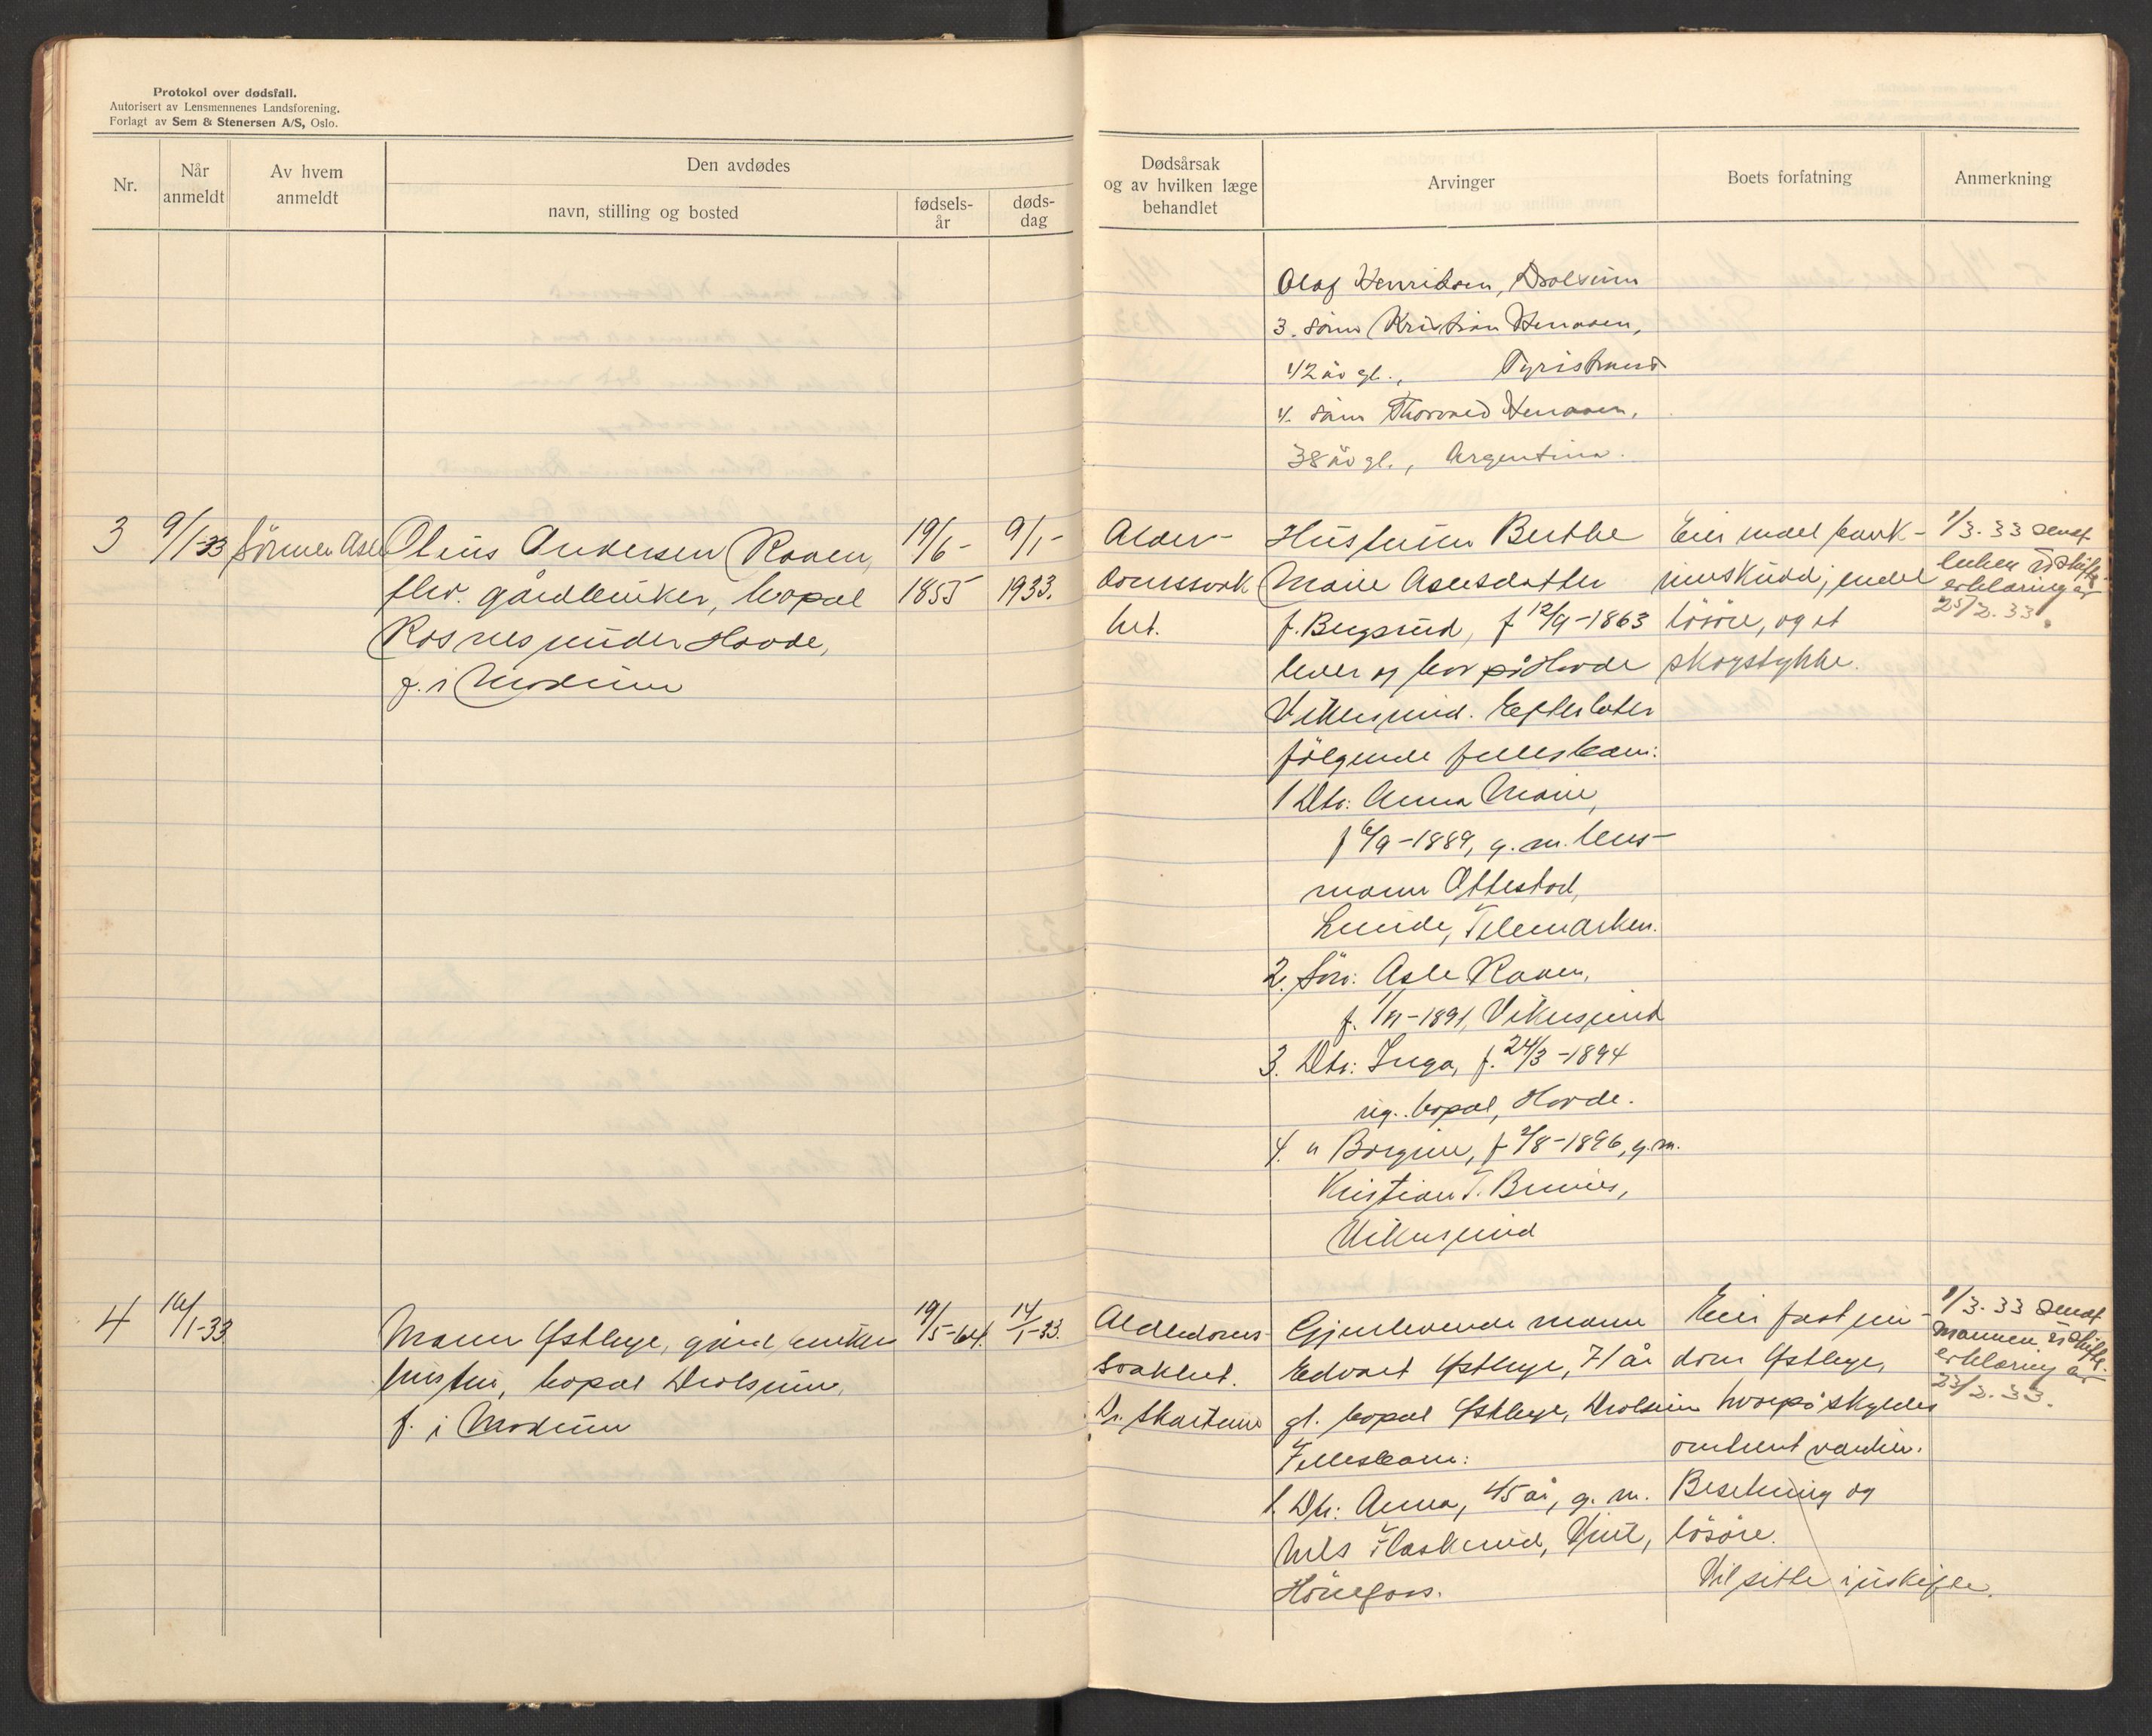 Protokol over dødsfall.
Autorisert av Lensmennenes Landsforening.
Forlagt av Sem & Stenersen A/S, Oslo.
Nr.
Når anmeldt
Av hvem anmeldt
Den avdødes
navn, stilling og bosted
fødsels-år
døds-dag
Dødsårsak
og av hvilken læge
behandlet
Arvinger
Boets forfatning
Anmerkning
Olaf Henriksen, Drolsum
3. sönn Kristian Hensen,
42 år gl., Tyristrand
4. sönn Thorvald
38 år gl., Argentina.
3
9/1-33
sönnen Asle
Olaus Andersen Raaen,
fhv. gårdbruker, bopæl
Rosnes under Hovde,
f. i Modum
19/6-
1855
9/1-
1933.
Alder-
domssvak
het.
Hustruen Berthe
Marie Aslesdatter
f. Bergsrud, f 12/9-1863
lever og bor på Hovde
Vikersund. Efterlater
følgende fellesbarn:
1 Dtr: Anna Marie,
f 6/9-1889, g. m. lens-
mann Ottestad,
Lunde, Telemarken.
2. Sön: Asle Raaen,
f. 1/11-1891, Vikersund
3. Dtr: Inga, f. 24/3-1894
ug. bopæl, Hovde.
4. " Borgine, f 2/8-1896, g. m.
Kristian T. Brunes,
Vikersund
Eier endel bank-
innskudd, endel
lösöre, og et
skogstykke.
1/3.33 sendt
enken uskifte-
erklæring av
25/2.33.
4
16/1-33
Maren Østbye, gårdbruker
hustru, bopæl Drolsum,
f. i Modum
19/5-64.
14/1-33.
Alderdoms-
svakhet.
Dr. Skartum
Gjenlevende mann
Edvart Østbye, 71 år
gl. bopæl Østbye, Drolsum
Fellesbarn:
1. Dtr: Anna, 45 år, g. m.
Nils Flaskerud,
Hönefoss.
Eier fast eien-
dom Østbye,
hvorpå skyldes
omtrent verdien.
Besetning og
lösöre.
Vil sitte i uskifte.
1/3.33 sendt
mannen uskifte-
erklæring av
23/2.33.